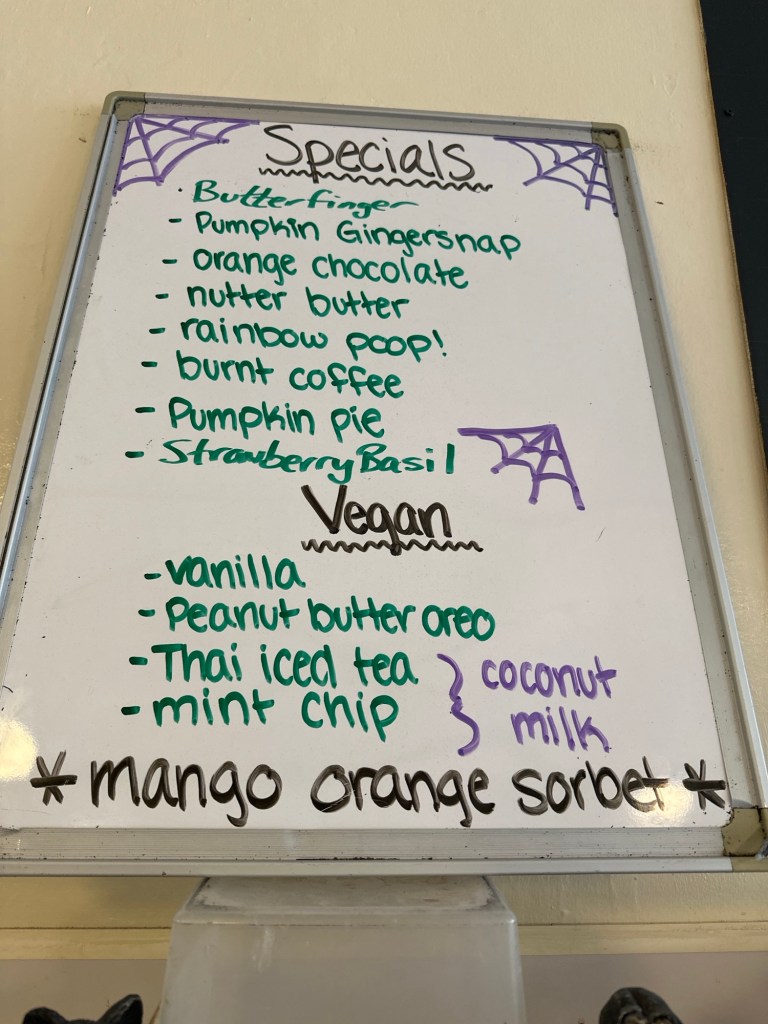 Specials
· Butterfinger
- Pumpkin Gingersnap
- orange chocolate
- nutter butter
- rainbow poop!
- burnt coffee
- Pumpkin pie
- Strawberry Basil
Vegan
- vanilla
- Peanut butter oreo
- Thai iced tea
- mint chip
} coconut
} milk
* mango orange sorbet *